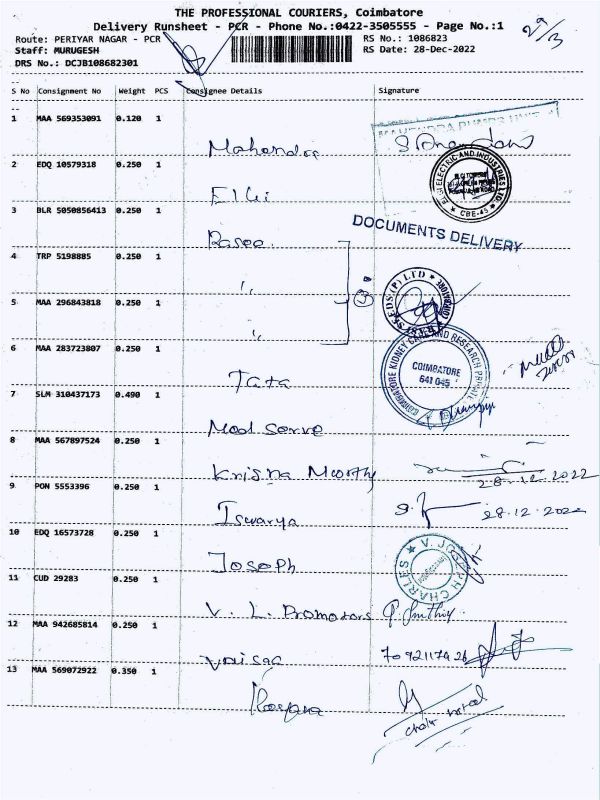 THE PROFESSIONAL COURIERS, Coimbatore
Delivery Runsheet - PCR - Phone No.:0422-3505555 - Page No.:1
Route: PERIYAR NAGAR - PCR RS No.: 1086823
Staff: MURUGESH RS Date: 28-Dec-2022
DRS No.: DCJB108682301
S No Consignment No Weight PCS Consignee Details Signature
1 MAA 569353091 0.120 1
Mahendra
MAHENDRA PUMPS
2 EDQ 10579318 0.250 1
ELGi
ELGI ELECTRIC AND INDUSTRIES LTD
CBE-45
3 BLR 5050856413 0.250 1
Rasee
DOCUMENTS DELIVERY
4 TRP 5198885 0.250 1
"
3
5 MAA 296843818 0.250 1
"
SEEDS (P) LTD
6 MAA 283723807 0.250 1
Tata
COIMBATORE KIDNEY CARE AND RESEARCH PRIVATE
COIMBATORE
641 045
7 SLM 310437173 0.490 1
Med Serve
8 MAA 567897524 0.250 1
Krisna Moorthy
28-12-2022
9 PON 5553396 0.250 1
Iswarya
28.12.2022
10 EDQ 16573728 0.250 1
Joseph
V. JOSEPH CHARLES
11 CUD 29283 0.250 1
V. L. Promotors
12 MAA 942685814 0.250 1
Vaisag
7092117426
13 MAA 569072922 0.350 1